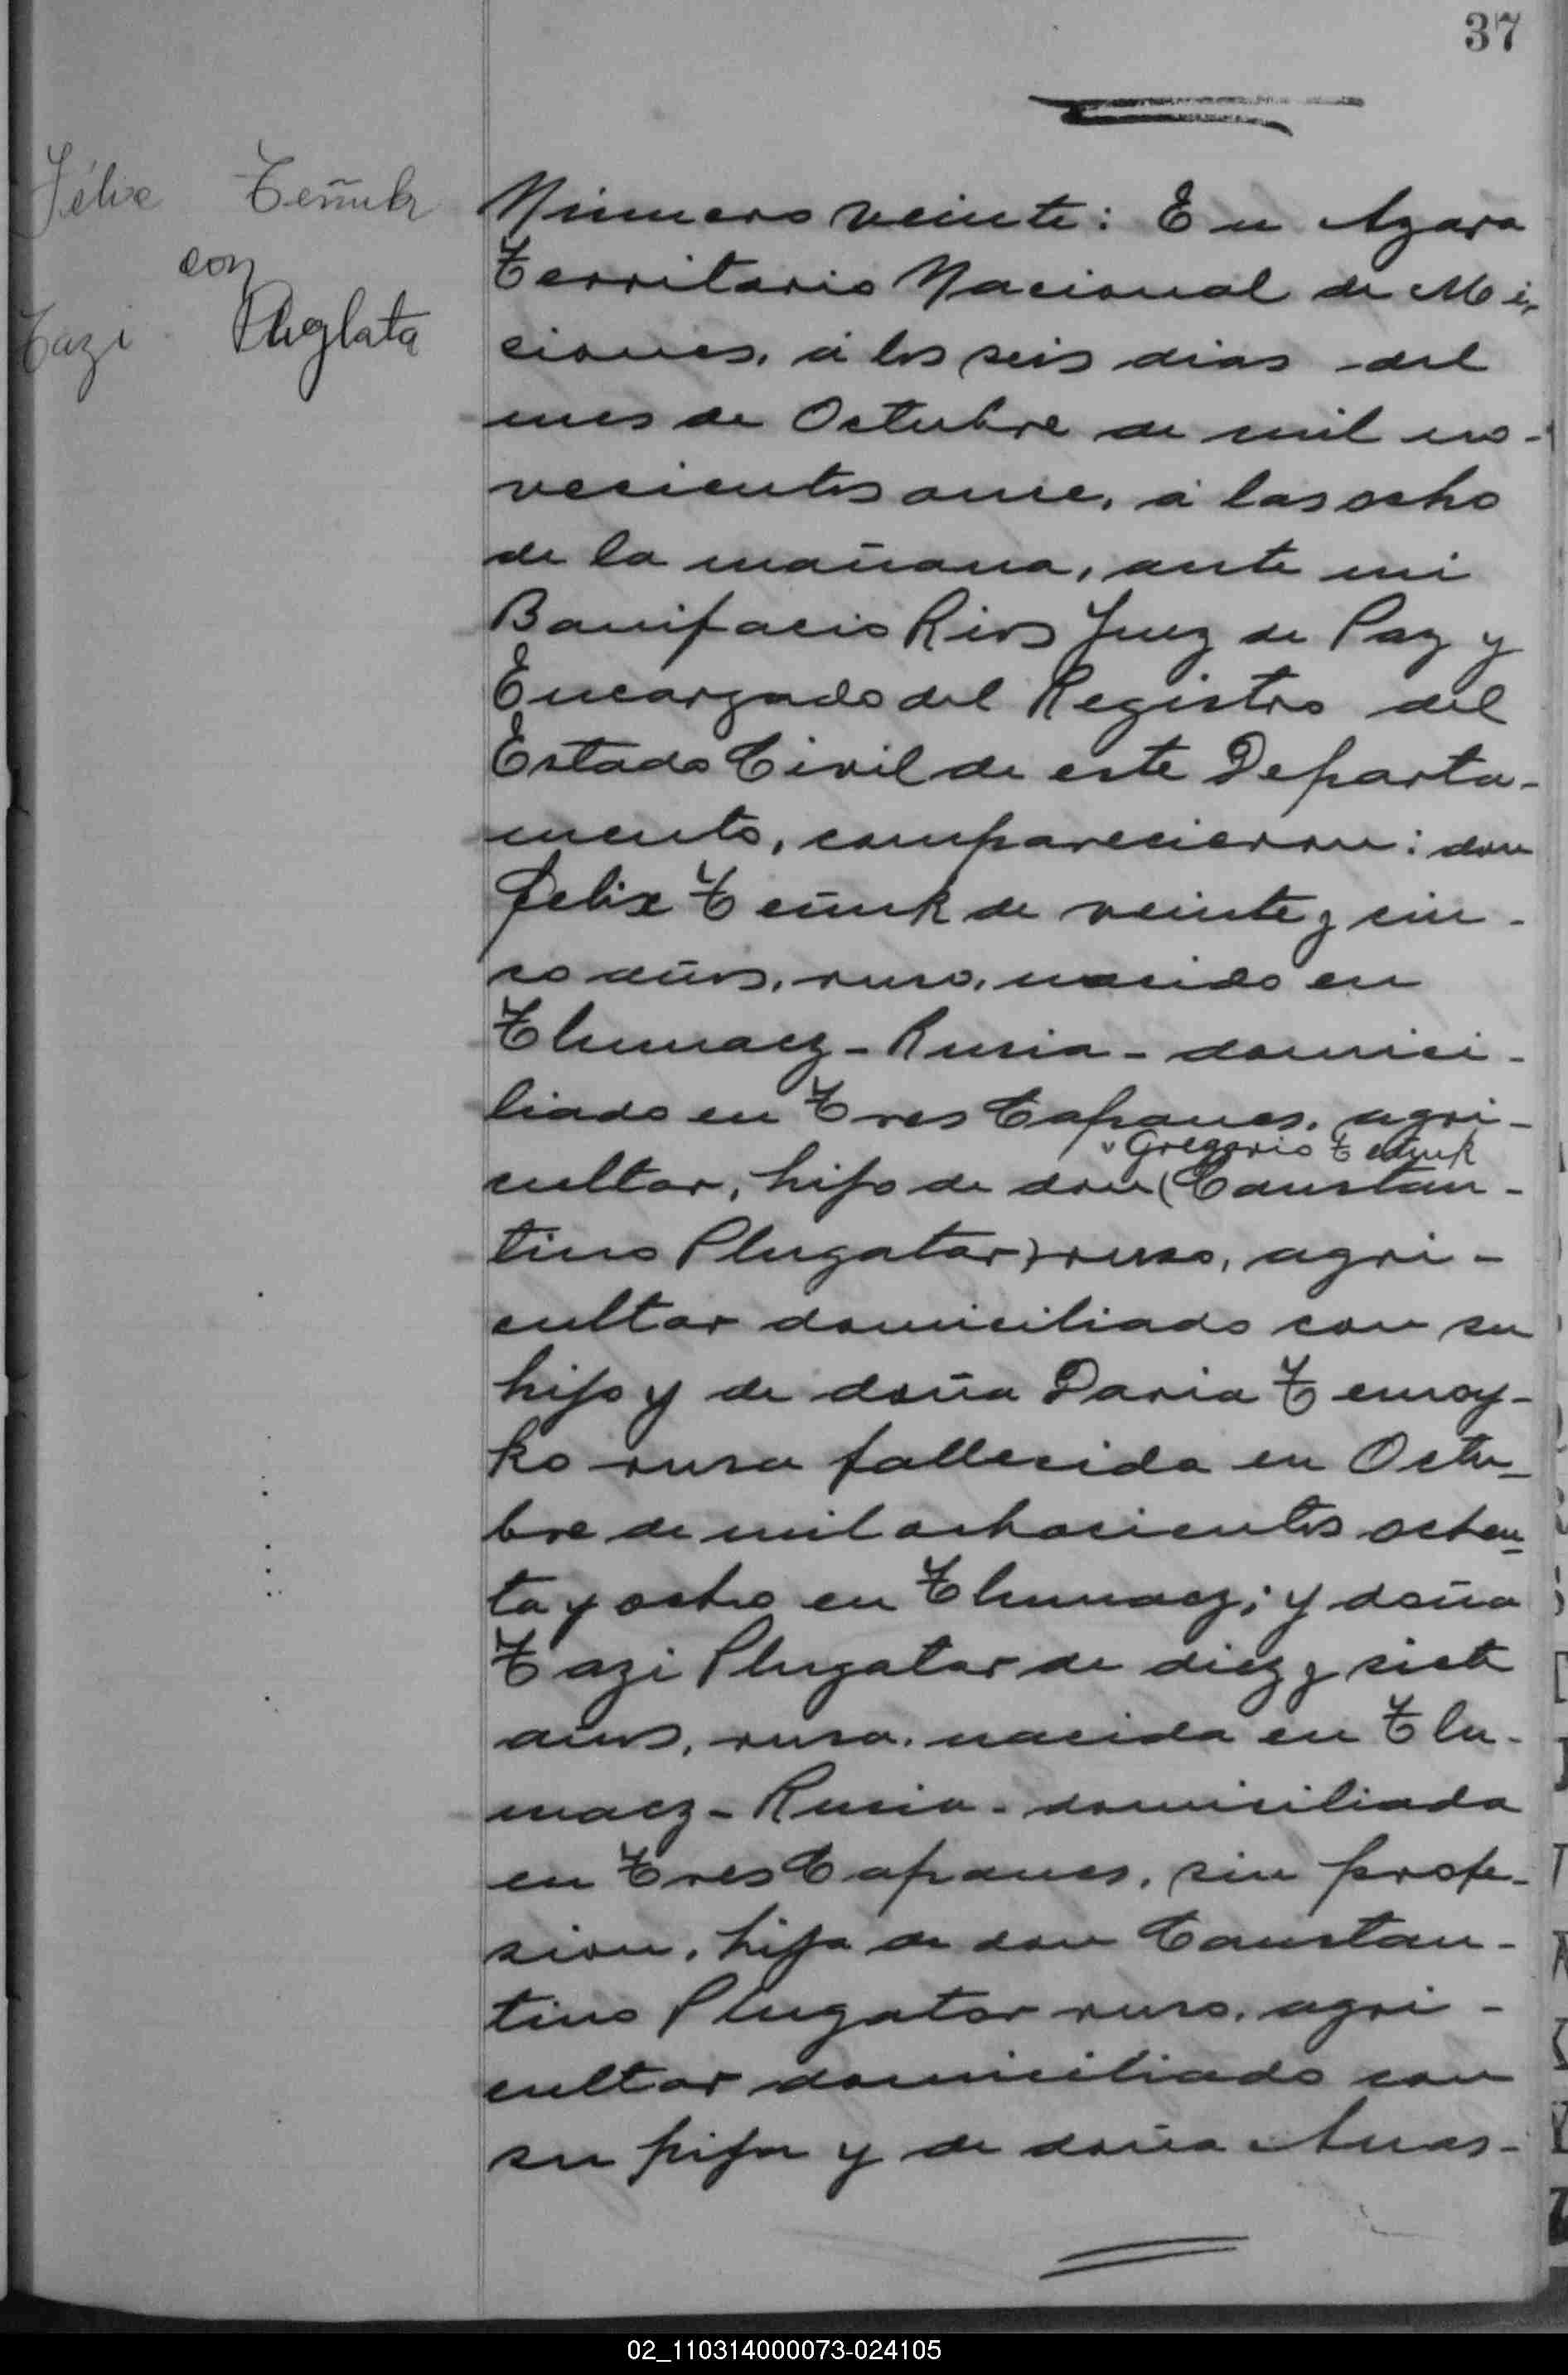 37
Félix Teñuk
con
Tazi Pluglata
Número veinte: En Azara
Territorio Nacional de Mi-
ciones, á los seis dias del
mes de Octubre de mil no-
vecientos once, á las ocho
de la mañana, ante mi
Bonifacio Rios Juez de Paz y
Encargado del Registro del
Estado Civil de este Departa-
mento, comparecieron: don
Felix Teñuk de veinte y cin-
co años, ruso, nacido en
Tlumacz - Rusia - domici-
liado en Tres Capones, agri-
v Gregorio Teñuk
cultor, hijo de don (Constan-
tino Plugator) ruso, agri-
cultor domiciliado con su
hijo y de doña Daria Temoy-
ko rusa fallecida en Octu-
bre de mil ochocientos ochen-
ta y ocho en Tlumacz; y doña
Tazi Plugator de diez y siete
años, rusa, nacida en Tlu-
macz - Rusia - domiciliada
en Tres Capones, sin profe-
sion, hija de don Constan-
tino Plugator ruso, agri-
cultor domiciliado con
su hija y de doña Anas-
02_110314000073-024105